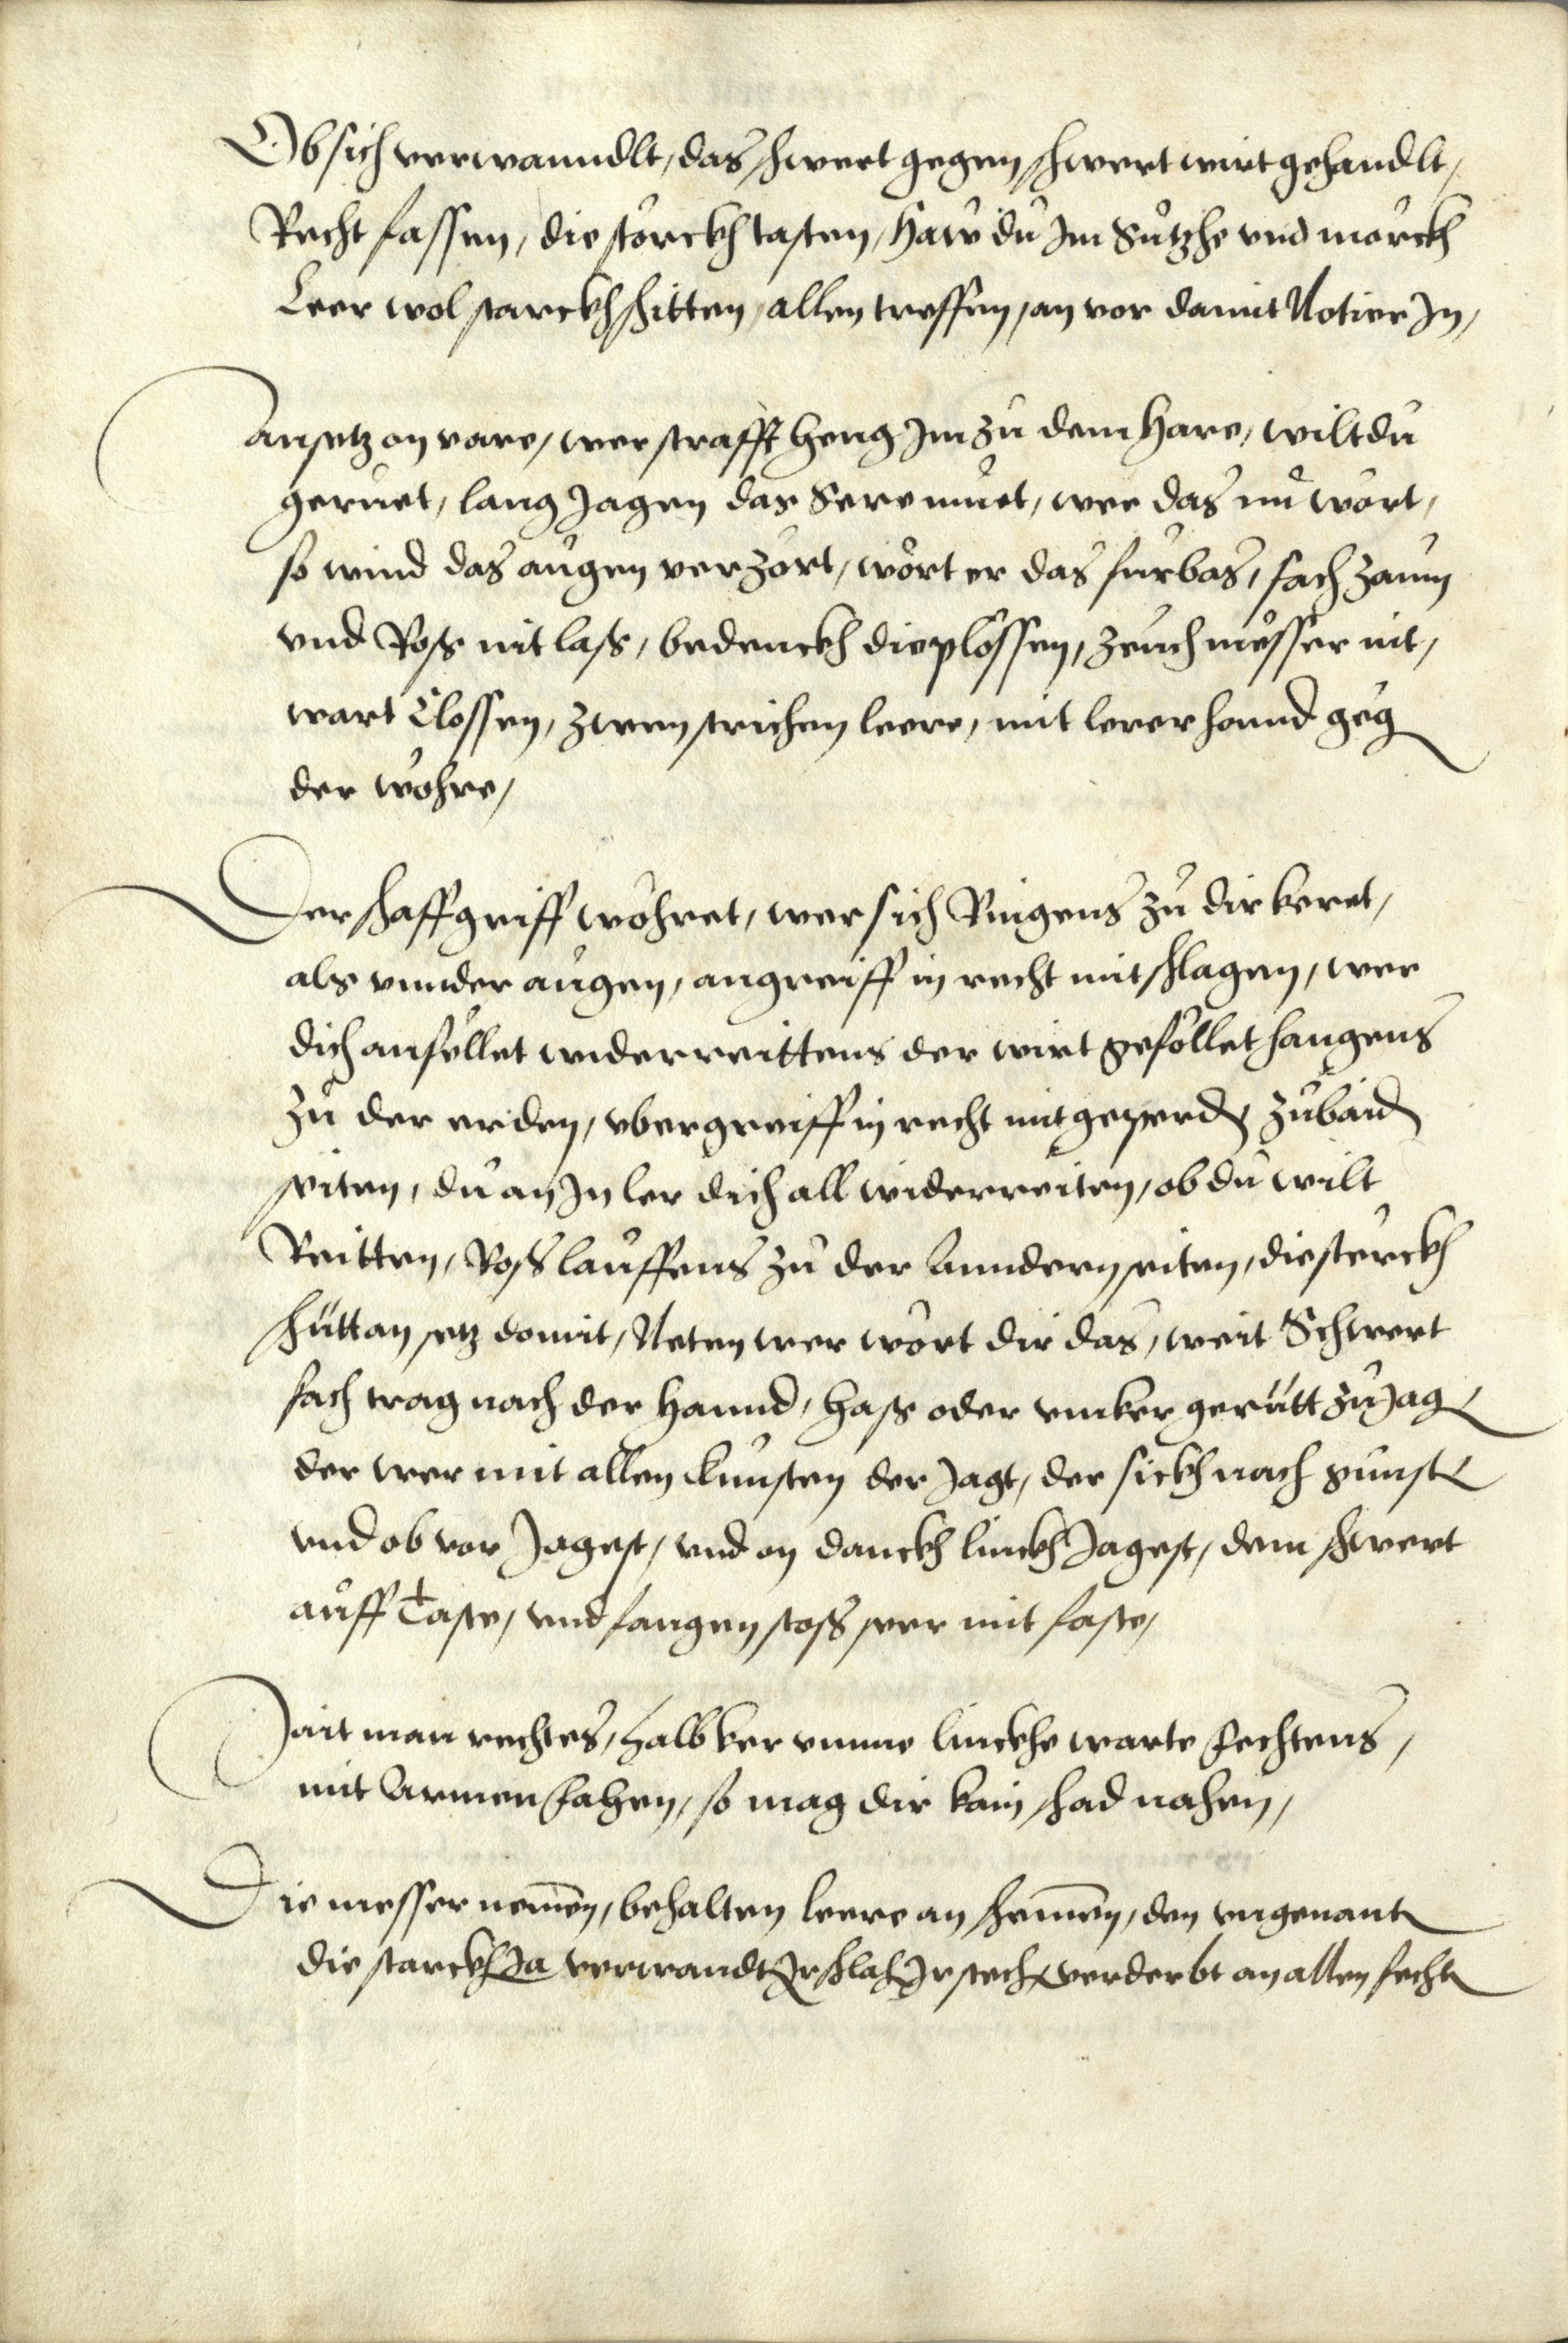 Ob sich verwanndlt, das schwert gegen schwert wirt gehandlt,
Recht fassen, die störckh tasten, Haw du Im Sützhe vnd mörckh
Leer wol starckh schitten, allen treffen, an vor damit Notier In,
Ansetz on vare, wer strafft heng Im zu dem Hare, wilt du
geruet, lang Jagen das Sere muet, wer das nu wört,
so wind das augen verzört, wört er das furbas, fach zaum
vnd Roß nit laß, bedenckh die plössen, zeuch mösser nit,
wart Clossen, zwen strichen leere, mit lerer hannd geg
der wöhre,
Der schaffgriff wöhret, wer sich Ringens zu dir keret,
als vnnder augen, angreiff in recht mit schlagen, wer
dich anfellet widerreittens der wirt geföllet hangens
zu der erden, vbergreiff in recht mit geperd, zu baid
seiten, du an In ler dich all widerreiten, ob du wilt
Reitten, Roß lauffens zu der Anndern seiten, die sterckh
schütt an setz domit, Neten wer wört dir das, weit Schwert
fach trag nach der Hannd, haß oder vmker gerütt zu Jag
der wer mit allen Kunsten der Jagt, der sickh nach gunst
vnd ob vor Jagest, vnd on danckh linckh Jagest, dem schwert
auff Taste, vnd fangen stoß sper mit faste,
Jait man rechtes, halb ker vmme linckhe warte fechtens,
mit Armen fahen, so mag dir kain schad nahen,
Die messer nemen, behalten leere an schemen, den vngenant
die starckh Ja verwandt Ir schlah Ir stech verderbt an allen fecht